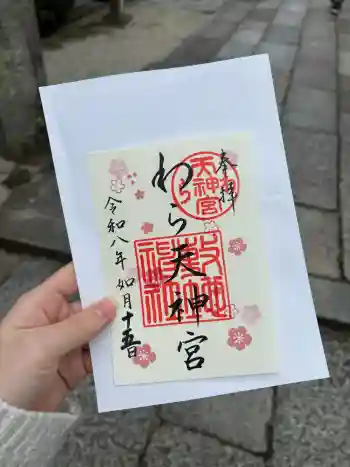 奉拝
わら天神宮
令和八年如月十五日
わら天神宮
敷地神社